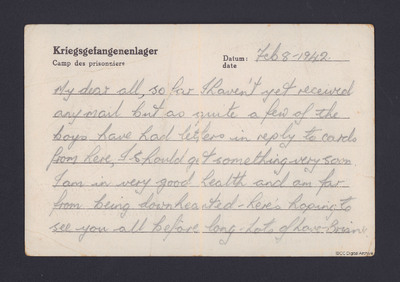 Kriegsgefangenenlager
Camp des prisonniers
Datum: Feb 8 - 1942
date
My dear all, so far I haven't yet received
any mail but as quite a few of the
boys have had letters in reply to cards
from here, I should get something very soon.
I am in very good health and am far
from being downhearted - here's hoping to
see you all before long - Lots of love
IBCC Digital Archive